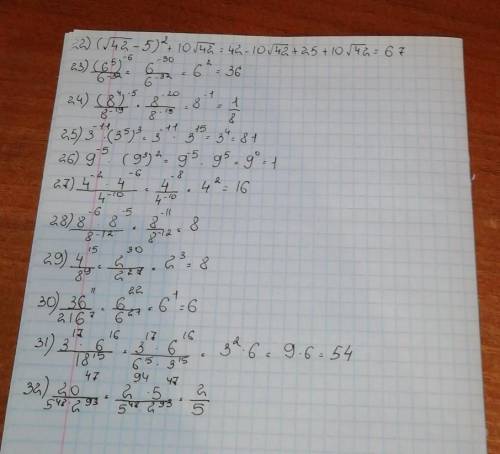 22) (√42 - 5)² + 10√42 = 42 - 10√42 + 25 + 10√42 = 67
23) (6⁵)⁻⁶/6⁻³² = 6⁻³⁰/6⁻³² = 6² = 36
24) (8⁴)⁻⁵/8⁻¹⁹ = 8⁻²⁰/8⁻¹⁹ = 8⁻¹ = 1/8
25) 3⁻¹¹ · (3⁵)³ = 3⁻¹¹ · 3¹⁵ = 3⁴ = 81
26) 9⁻⁵ · (9³)² = 9⁻⁵ · 9⁵ = 9⁰ = 1
27) 4⁻² · 4⁻⁶/4⁻¹⁰ = 4⁻⁸/4⁻¹⁰ = 4² = 16
28) 8⁻⁶ · 8⁻⁵/8⁻¹² = 8⁻¹¹/8⁻¹² = 8
29) 4¹⁵/8⁹ = 2³⁰/2²⁷ = 2³ = 8
30) 36¹¹/216⁷ = 6²²/6²¹ = 6¹ = 6
31) 3¹⁷ · 6¹⁶/18¹⁵ = 3¹⁷ · 6¹⁶/6¹⁵ · 3¹⁵ = 3² · 6 = 9 · 6 = 54
32) 20⁴⁷/5⁴⁸ · 2⁹³ = 2⁹⁴ · 5⁴⁷/5⁴⁸ · 2⁹³ = 2/5